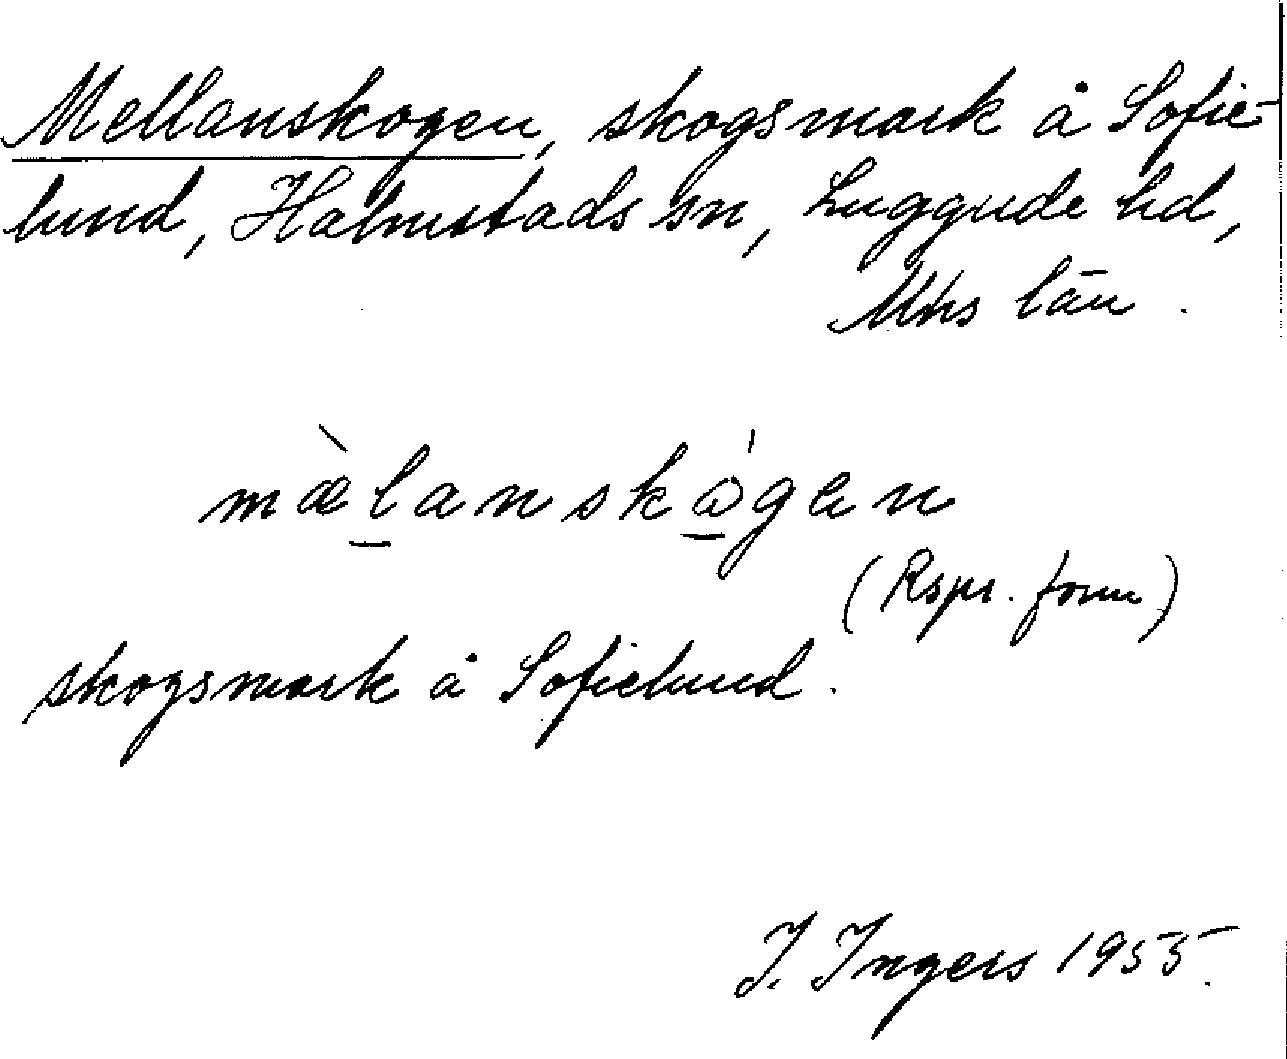 Mellanskogen, skogsmark å Sofie-
lund, Halmstads sn, Luggude hd,
Mhs län.
mæ̀l̲anskó̲gen
(Rspr. form)
skogsmark å Sofielund.
I. Ingers 1955.